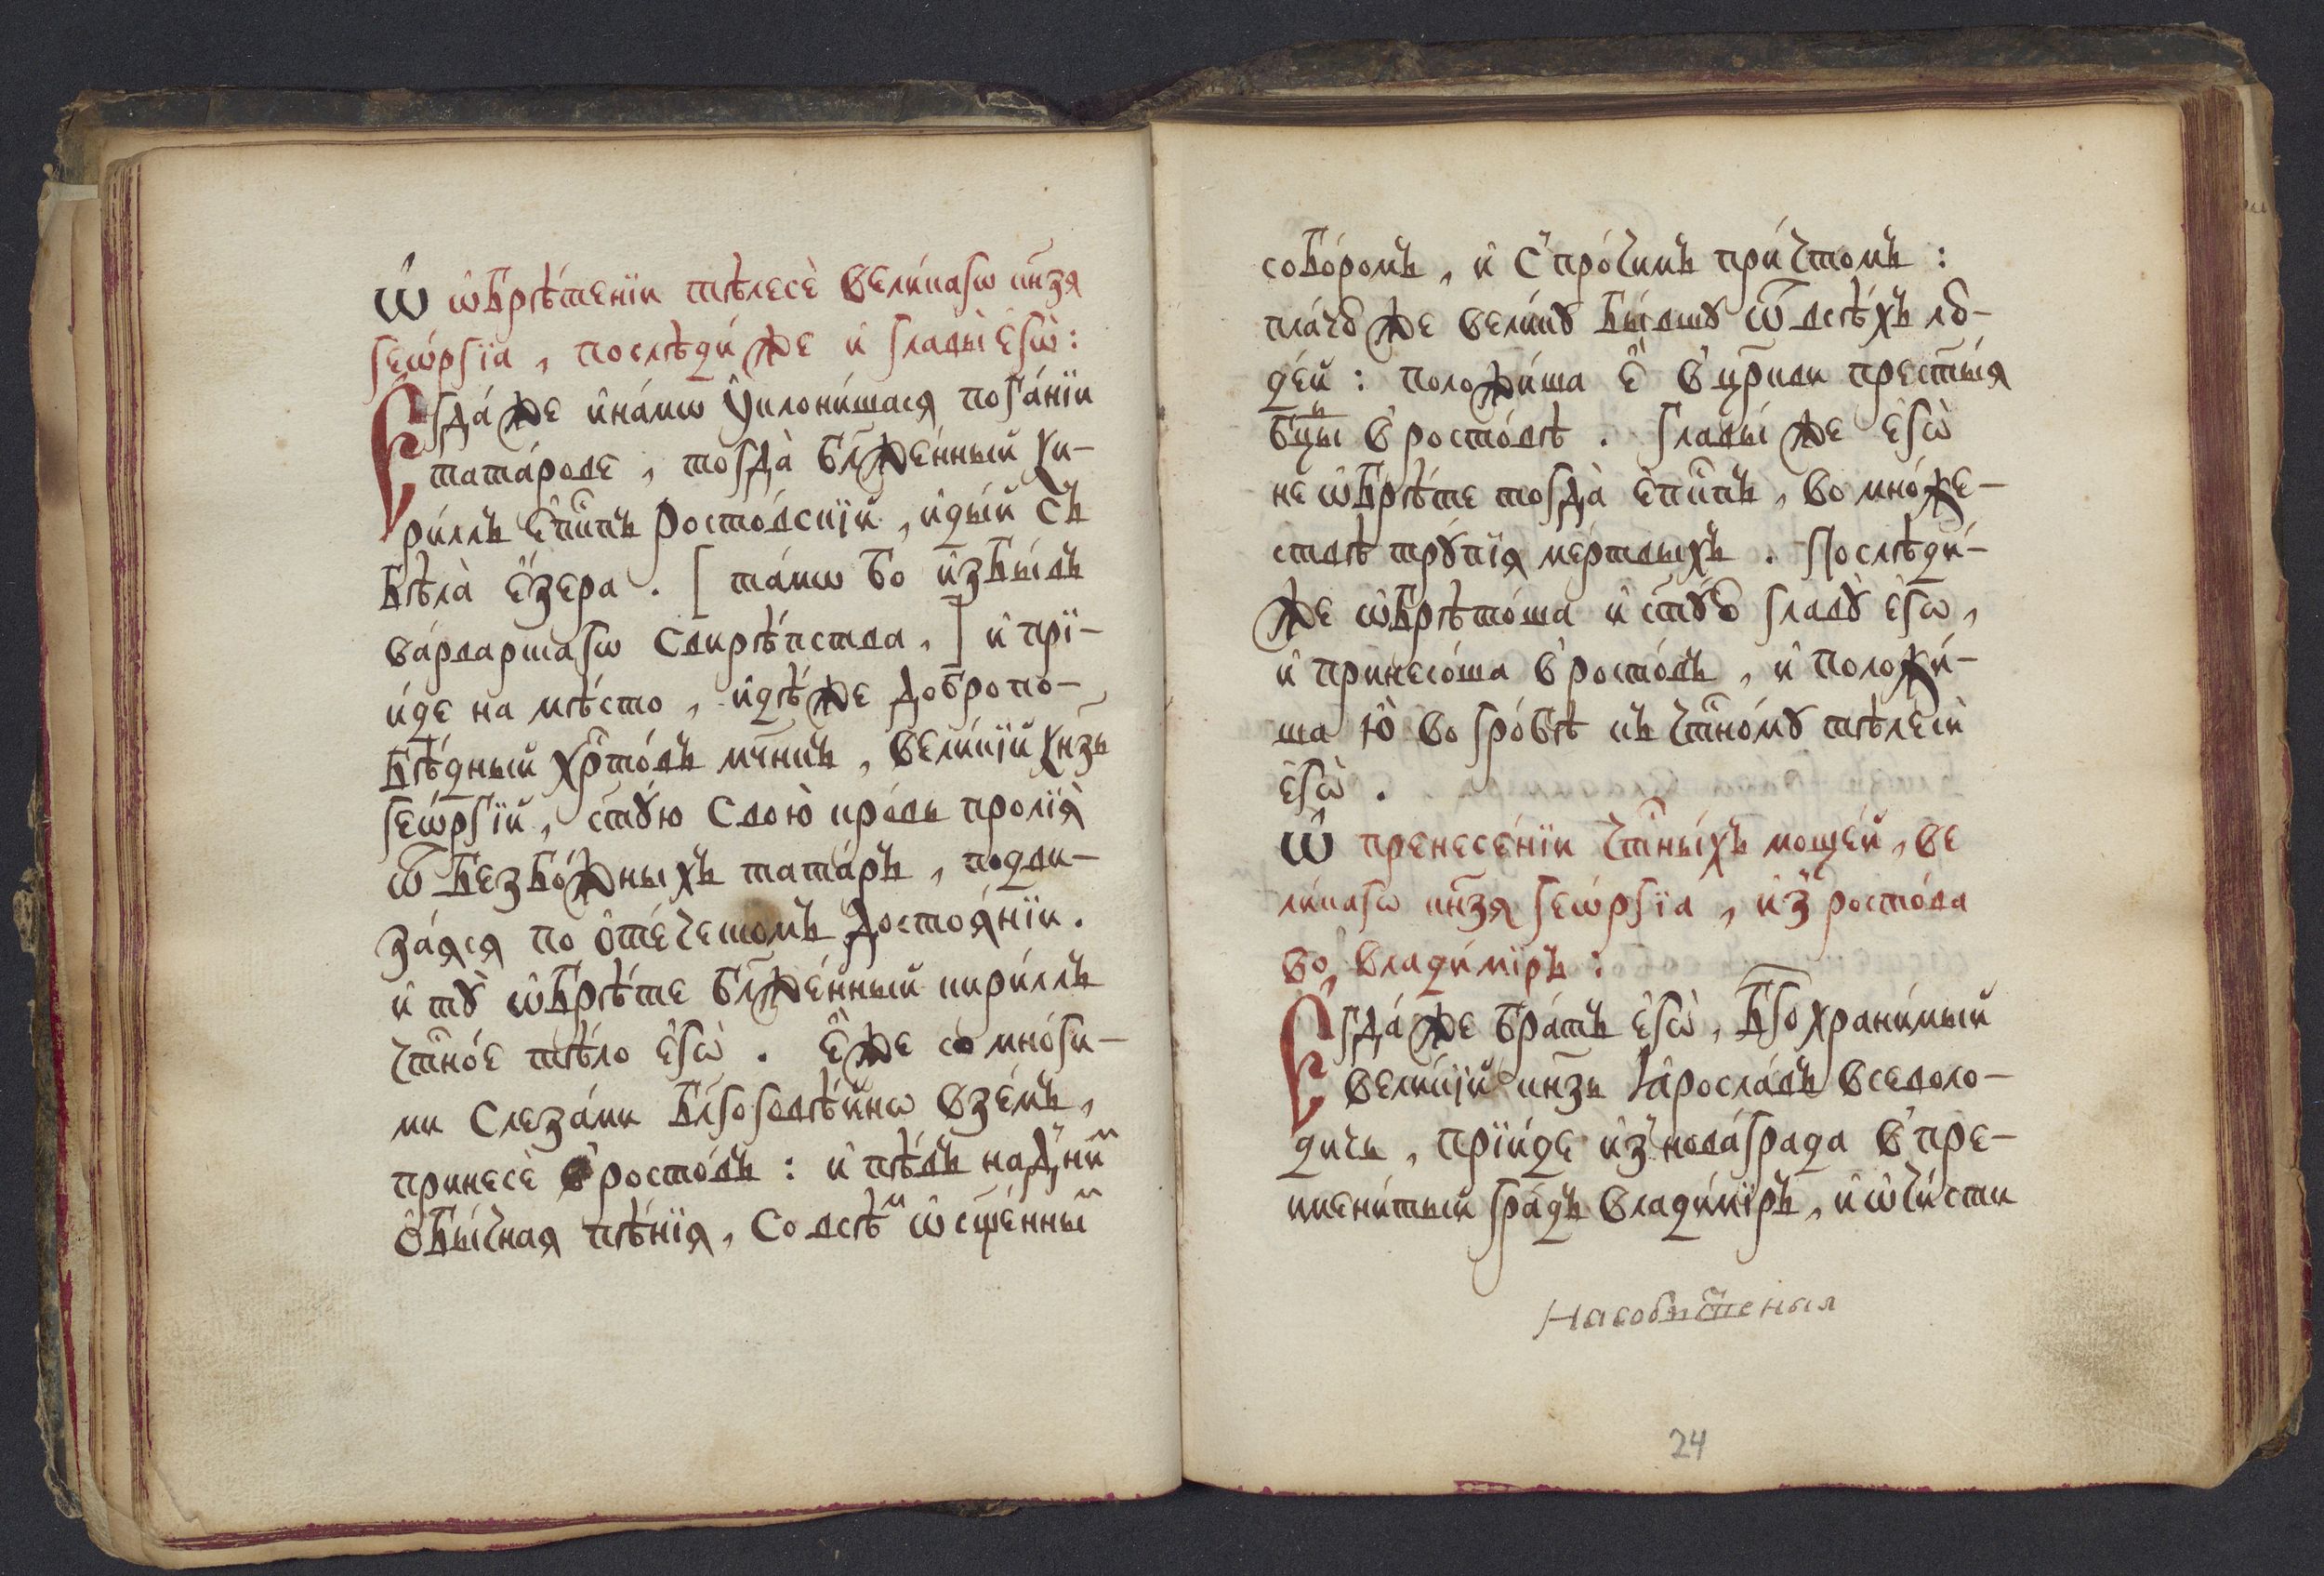 Ѡ ѡ҆брѣ́тенїи тѣлесѐ вели́кагѡ кн҃зѧ
геѡ́ргїа, послѣди́ же и҆ главы̀ є҆гѡ̀:
Є҆гда́ же и҆на́мѡ ᲂу҆клони́шасѧ пога́нїи
тата́рове, тогда̀ бл҃же́нный ки-
ри́ллъ є҆пⷭ҇кпъ росто́вскїй, и҆ды́й съ
бѣла̀ є҆́зера. [ та́мѡ бо и҆збы́въ
ва́рварскагѡ свирѣ́пства, ] и҆ прї-
и́де на мѣ́сто, и҆дѣ́же добропо-
бѣ́дный хрⷭ҇то́въ мч҃нкъ, вели́кїй кн҃зь
геѡ́ргїй, ст҃ꙋ́ю свою̀ кро́вь пролїѧ̀
ѿ безбо́жныхъ тата́ръ, подви-
за́ѧсѧ по ѻ҆те́честомъ достоѧ́нїи.
и҆ тꙋ̀ ѡ҆брѣ́те бл҃же́нный кири́ллъ
чⷭ҇тно́е тѣ́ло є҆гѡ̀. є҆́же со мно́ги-
ми слеза́ми бл҃гоговѣ́йнѡ взе́мъ,
принесѐ в̾ росто́въ: и҆ пѣ́въ над̾ни́ⷨ
ѻ҆бы́чнаѧ пѣ́нїѧ, со всѣ́ⷨ ѡ҆сщ҃е́нныⷨ
собо́ромъ, и҆ с̾ про́чимъ при́чтомъ:
пла́чꙋ же вели́кꙋ бы́вшꙋ ѿ всѣ́хъ лю-
де́й: положи́ша є҆̀ в̾ цр҃кви прест҃ы́ѧ
бц҃ы в̾ росто́вѣ. главы́ же є҆гѡ̀
не ѡ҆брѣ́те тогда̀ є҆пⷭ҇кпъ, во мно́же-
ствѣ трꙋ́пїѧ ме́ртвыхъ. послѣди́-
же ѡ҆брѣто́ша и҆ ст҃ꙋ́ю главꙋ̀ є҆гѡ̀,
и҆ принесо́ша в̾ росто́въ, и҆ положи́-
ша ю҆̀ во гро́бѣ къ чⷭ҇тно́мꙋ тѣлесѝ
є҆гѡ̀.
Ѡ пренесе́нїи чⷭ҇тны́хъ моще́й, ве
ли́кагѡ кн҃зѧ геѡ́ргїа, и҆з̾ росто́ва
во, влади́мїръ:
Є҆гда́ же бра́тъ є҆гѡ̀, бг҃охрани́мый
вели́кїй кн҃зь ꙗ҆росла́въ всеволо-
дичь, прїи́де и҆з̾ нова́града в̾ пре-
имени́тый гра́дъ влади́мїръ, и҆ ѡ҆чи́сти
24